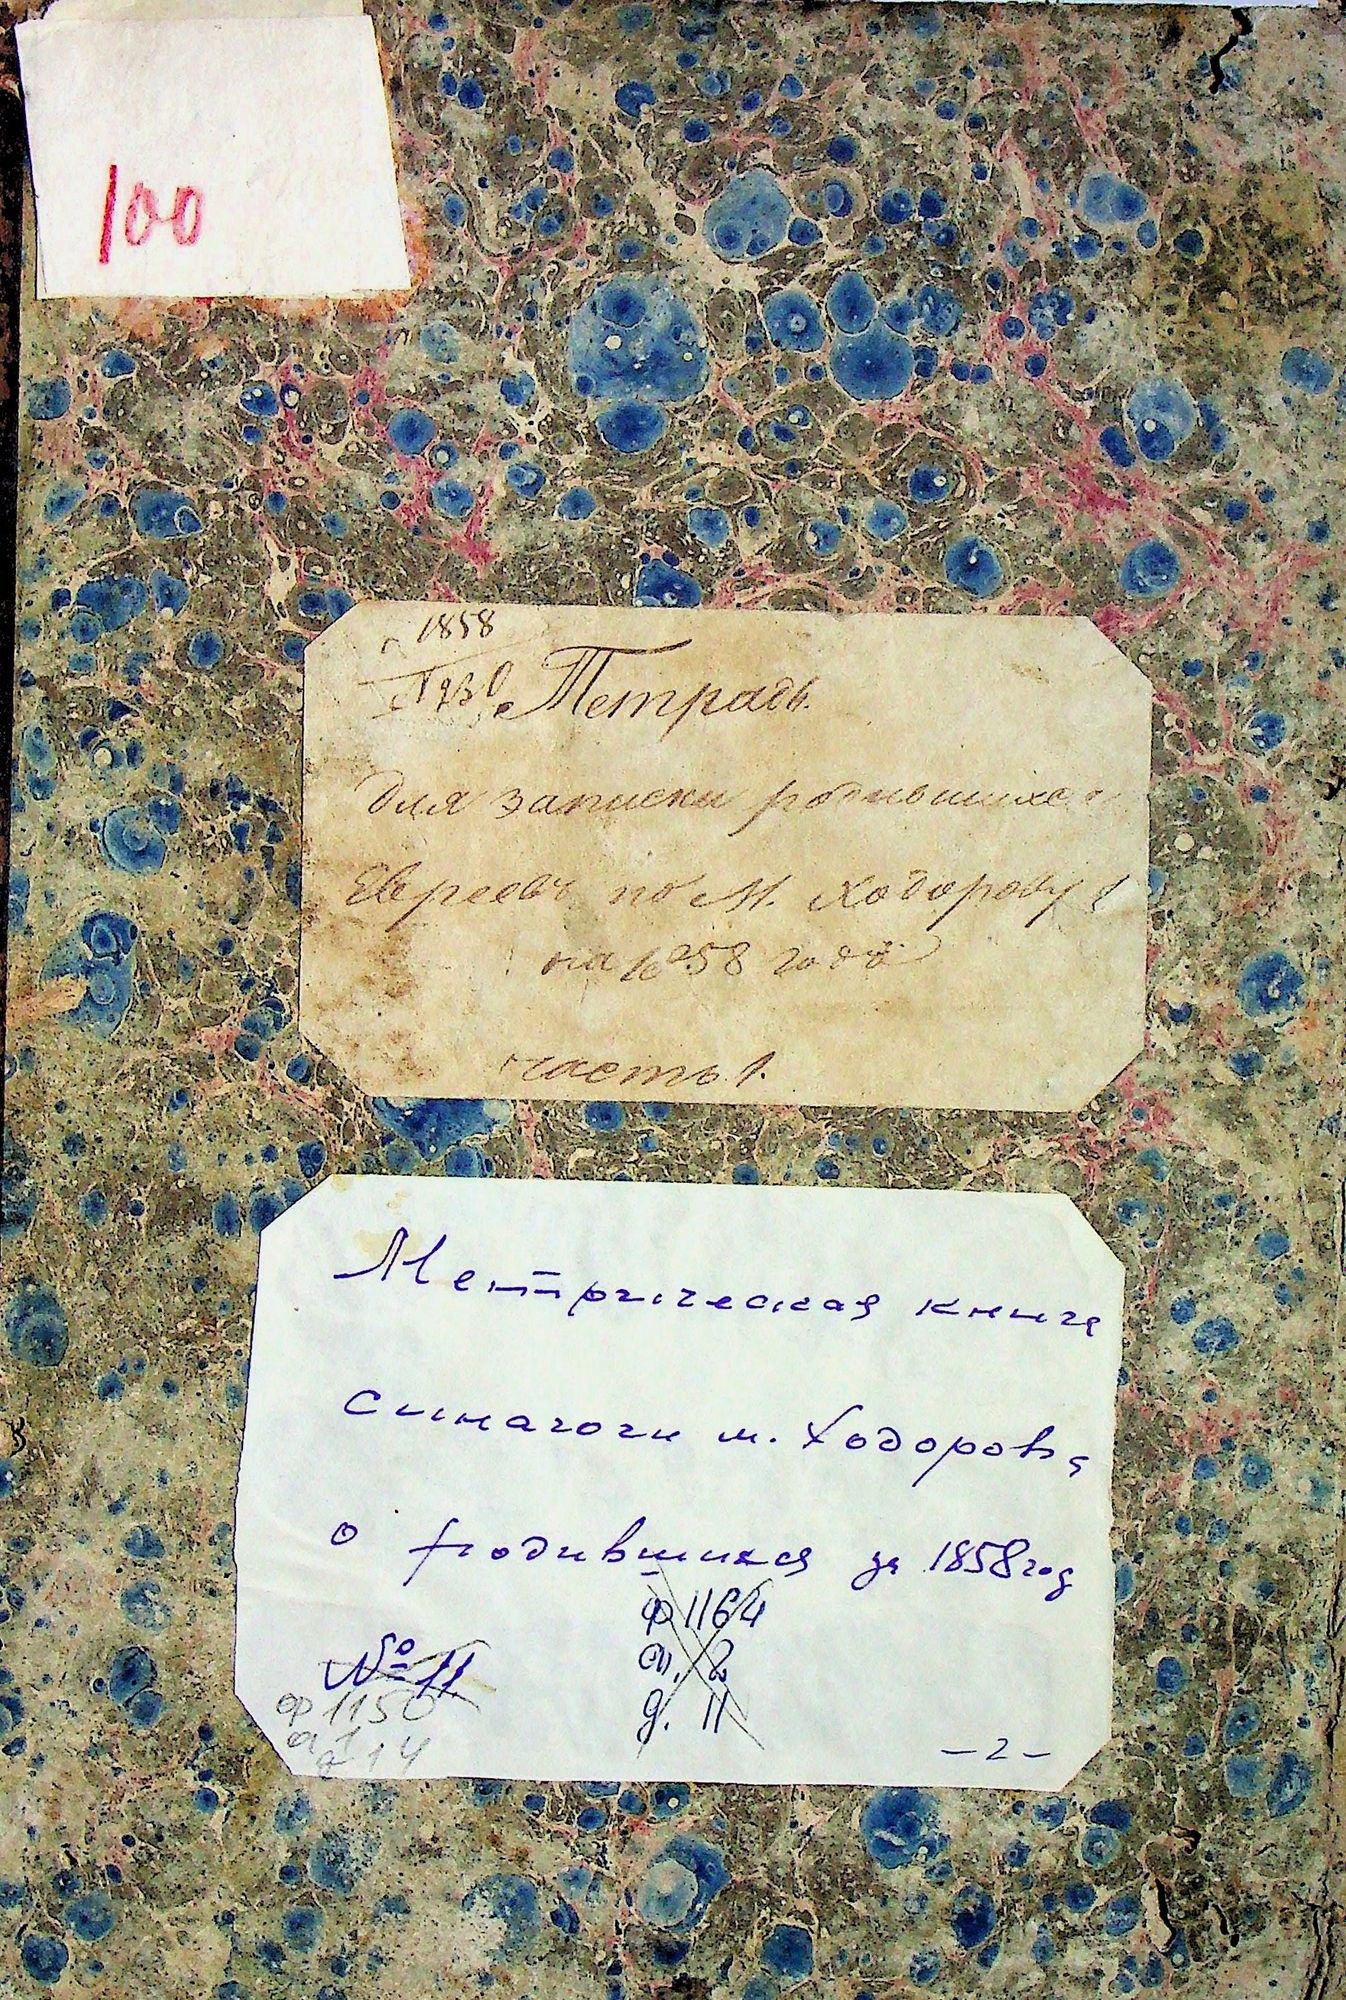 100
1858
Тетрадь
для записки родившихся
Евреевъ по М. Ходорову
на 1858 годъ
часть 1.
Метрическая книга
синагоги м. Ходорова
о родившихся за 1858 год
ф 1164
оп. 2
д. 11
№ 11
ф 1150
о 1
д 14
– 2 –